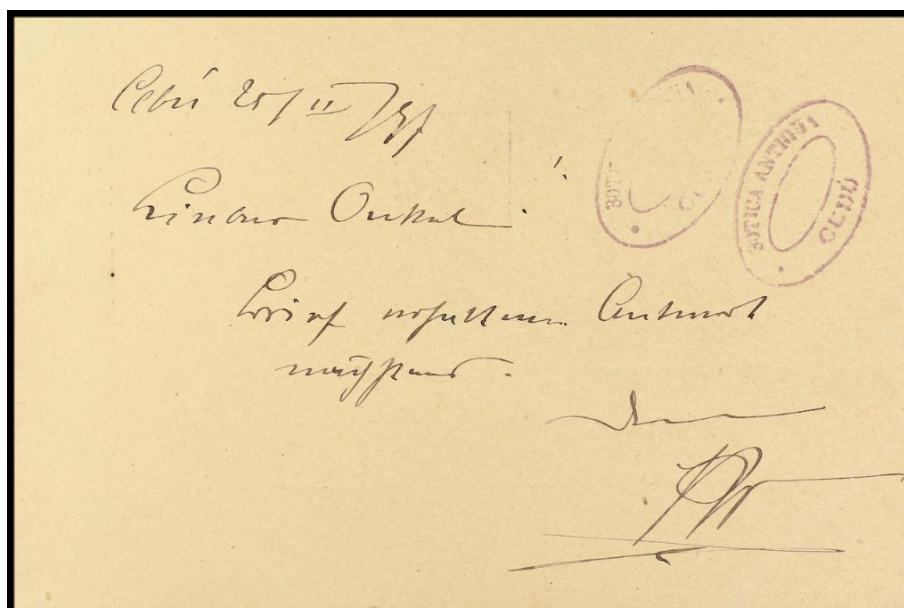 Cebú 25/II 97
Lieber Onkel!
Brief erhalten. Antwort
nächstens.
Dein
BOTICA ANTIGUA
CEBÚ
BOTICA ANTIGUA
CEBÚ